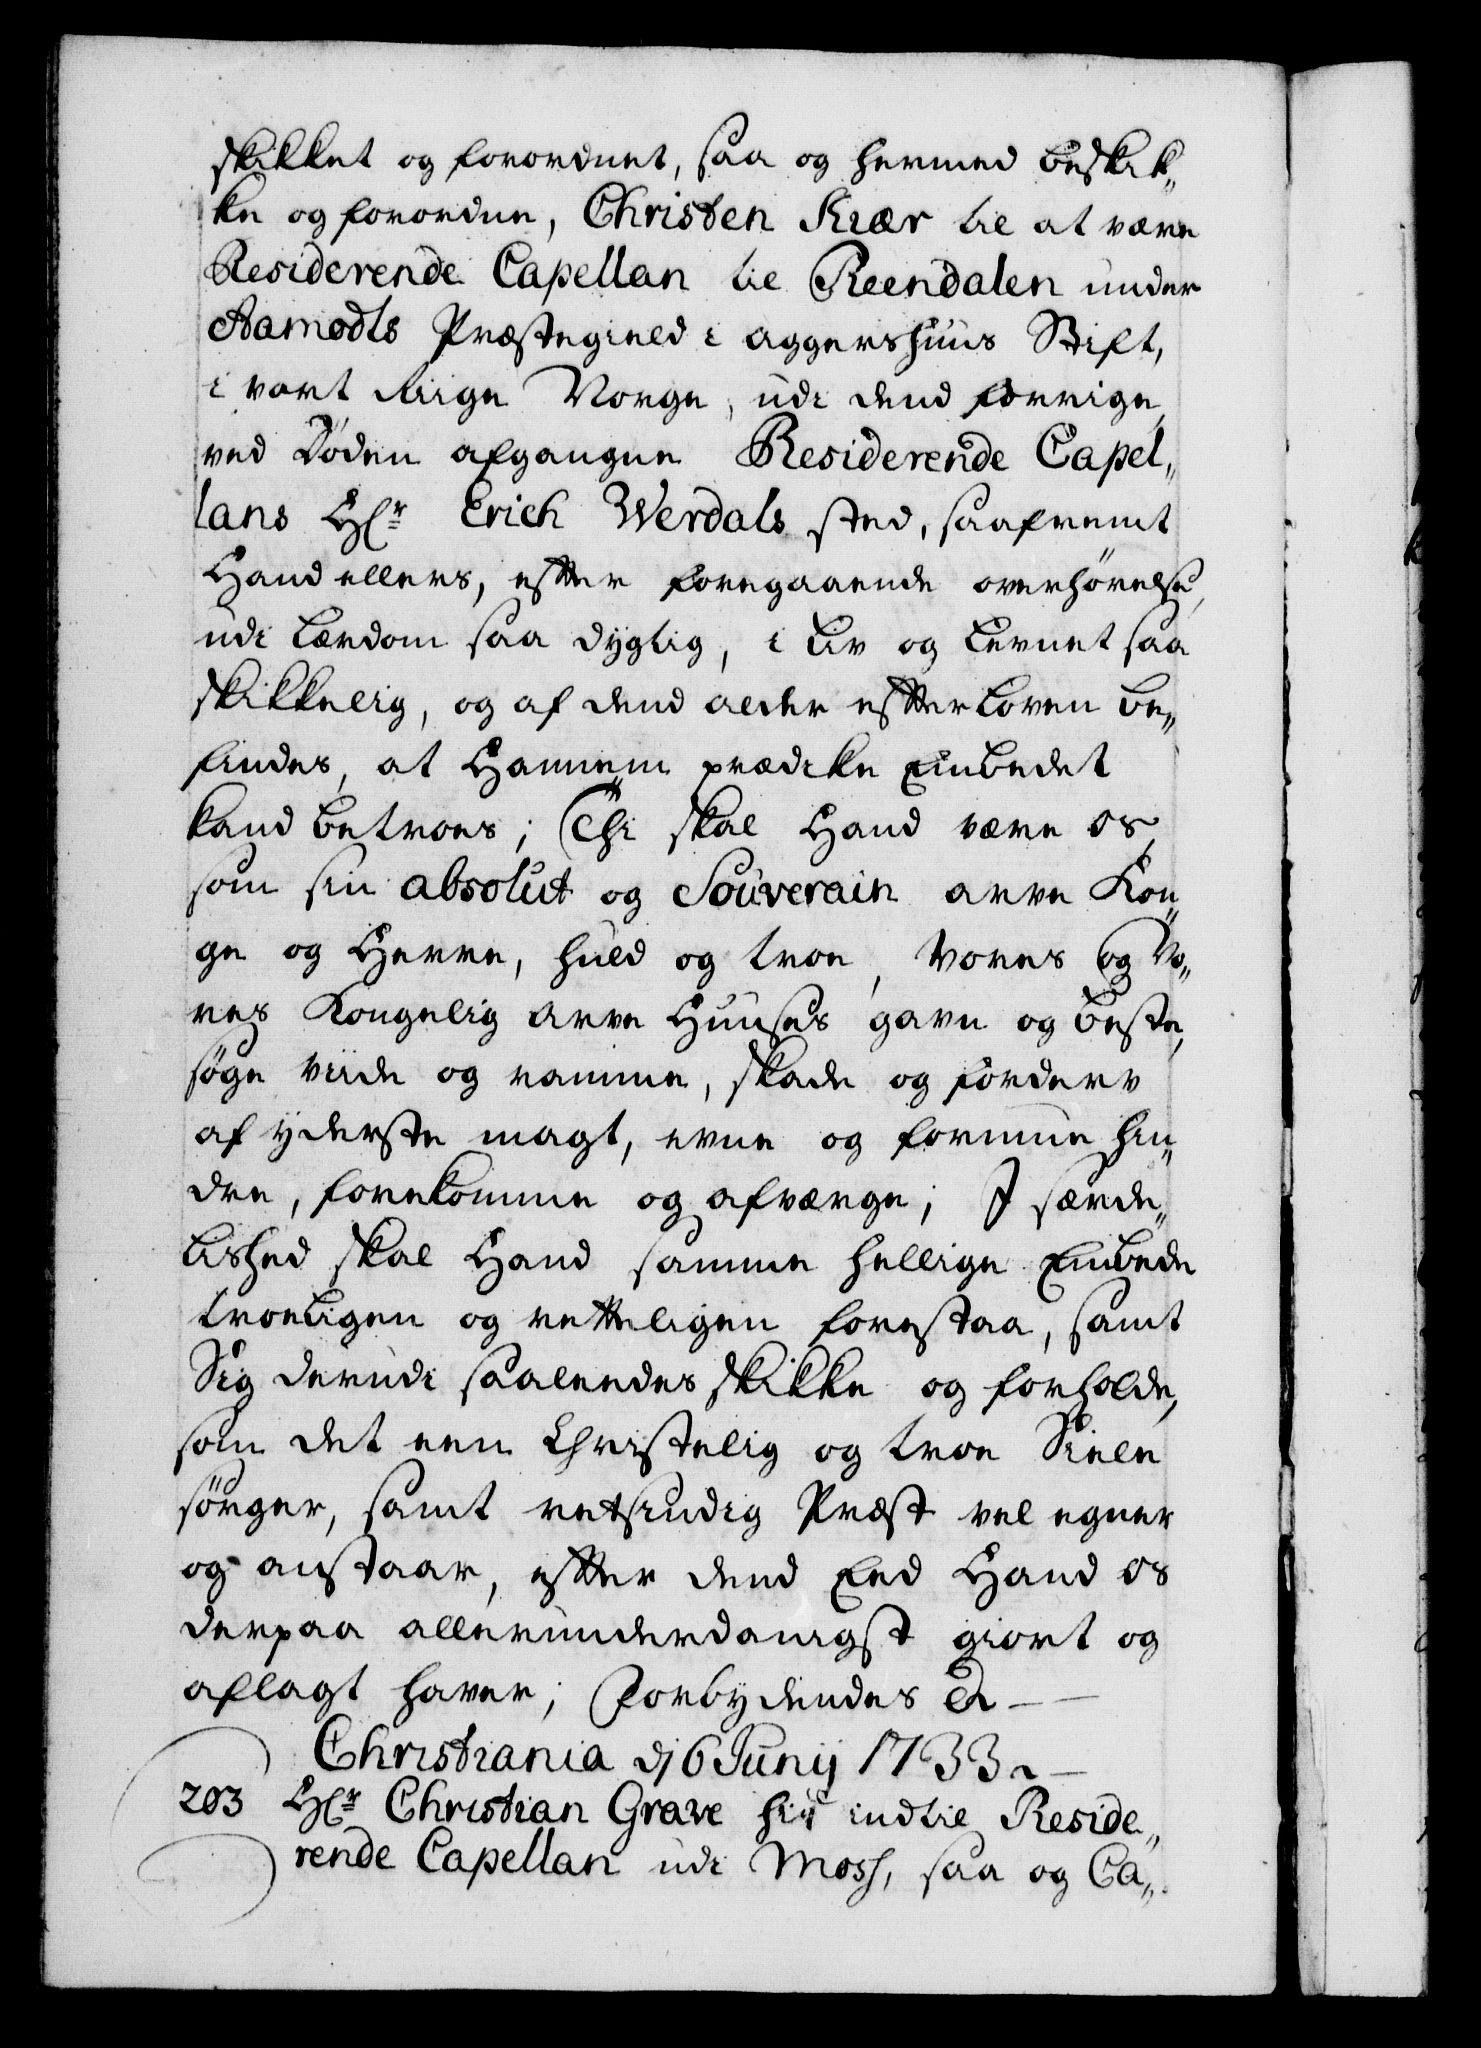 skikket og forordnet, saa og hermed beskik„
ke og forordne, Christen Kiær til at være
Residerende Capellan til Reendalen under
Aamodts Præstegield i Aggershuus Stift,
i vort Riige Norge, udi dend forrige,
ved Døden afgangne Residerende Capel„
lans Hr. Erich Werdals sted, saafremt
Hand ellers, efter foregaaende overhørelse,
udi Lærdom saa dygtig, i Liv og Levnet saa
skikkelig, og af dend alder efter Loven be„
findes, at Hannem prædike Embedet
kand betroes; Thi skal Hand være os,
som sin absolut og Souverain arve Kon„
ge og Herre, huld og troe, Vores og Vo„
res Kongelig Arve Huuses gavn og beste,
søge viide og ramme, skade og forderv
af yderste magt, evne og formue hin„
dre, forekomme og afværge; I særde„
lished skal Hand samme hellige Embede
troeligen og retteligen forestaa, samt
Sig derudi saaledes skikke og forholde,
som det een Christelig og troe Siele
sørger, samt retsindig Præst vel egner
og anstaar, efter dend Eed Hand os
derpaa allerunderdanigst giort og
aflagt haver; Forbydendes &
Christiania dj 6 Junij 1733
203 Hr. Christian Grave hid indtil Reside„
rende Capellan udi Moss, saa og Ca„